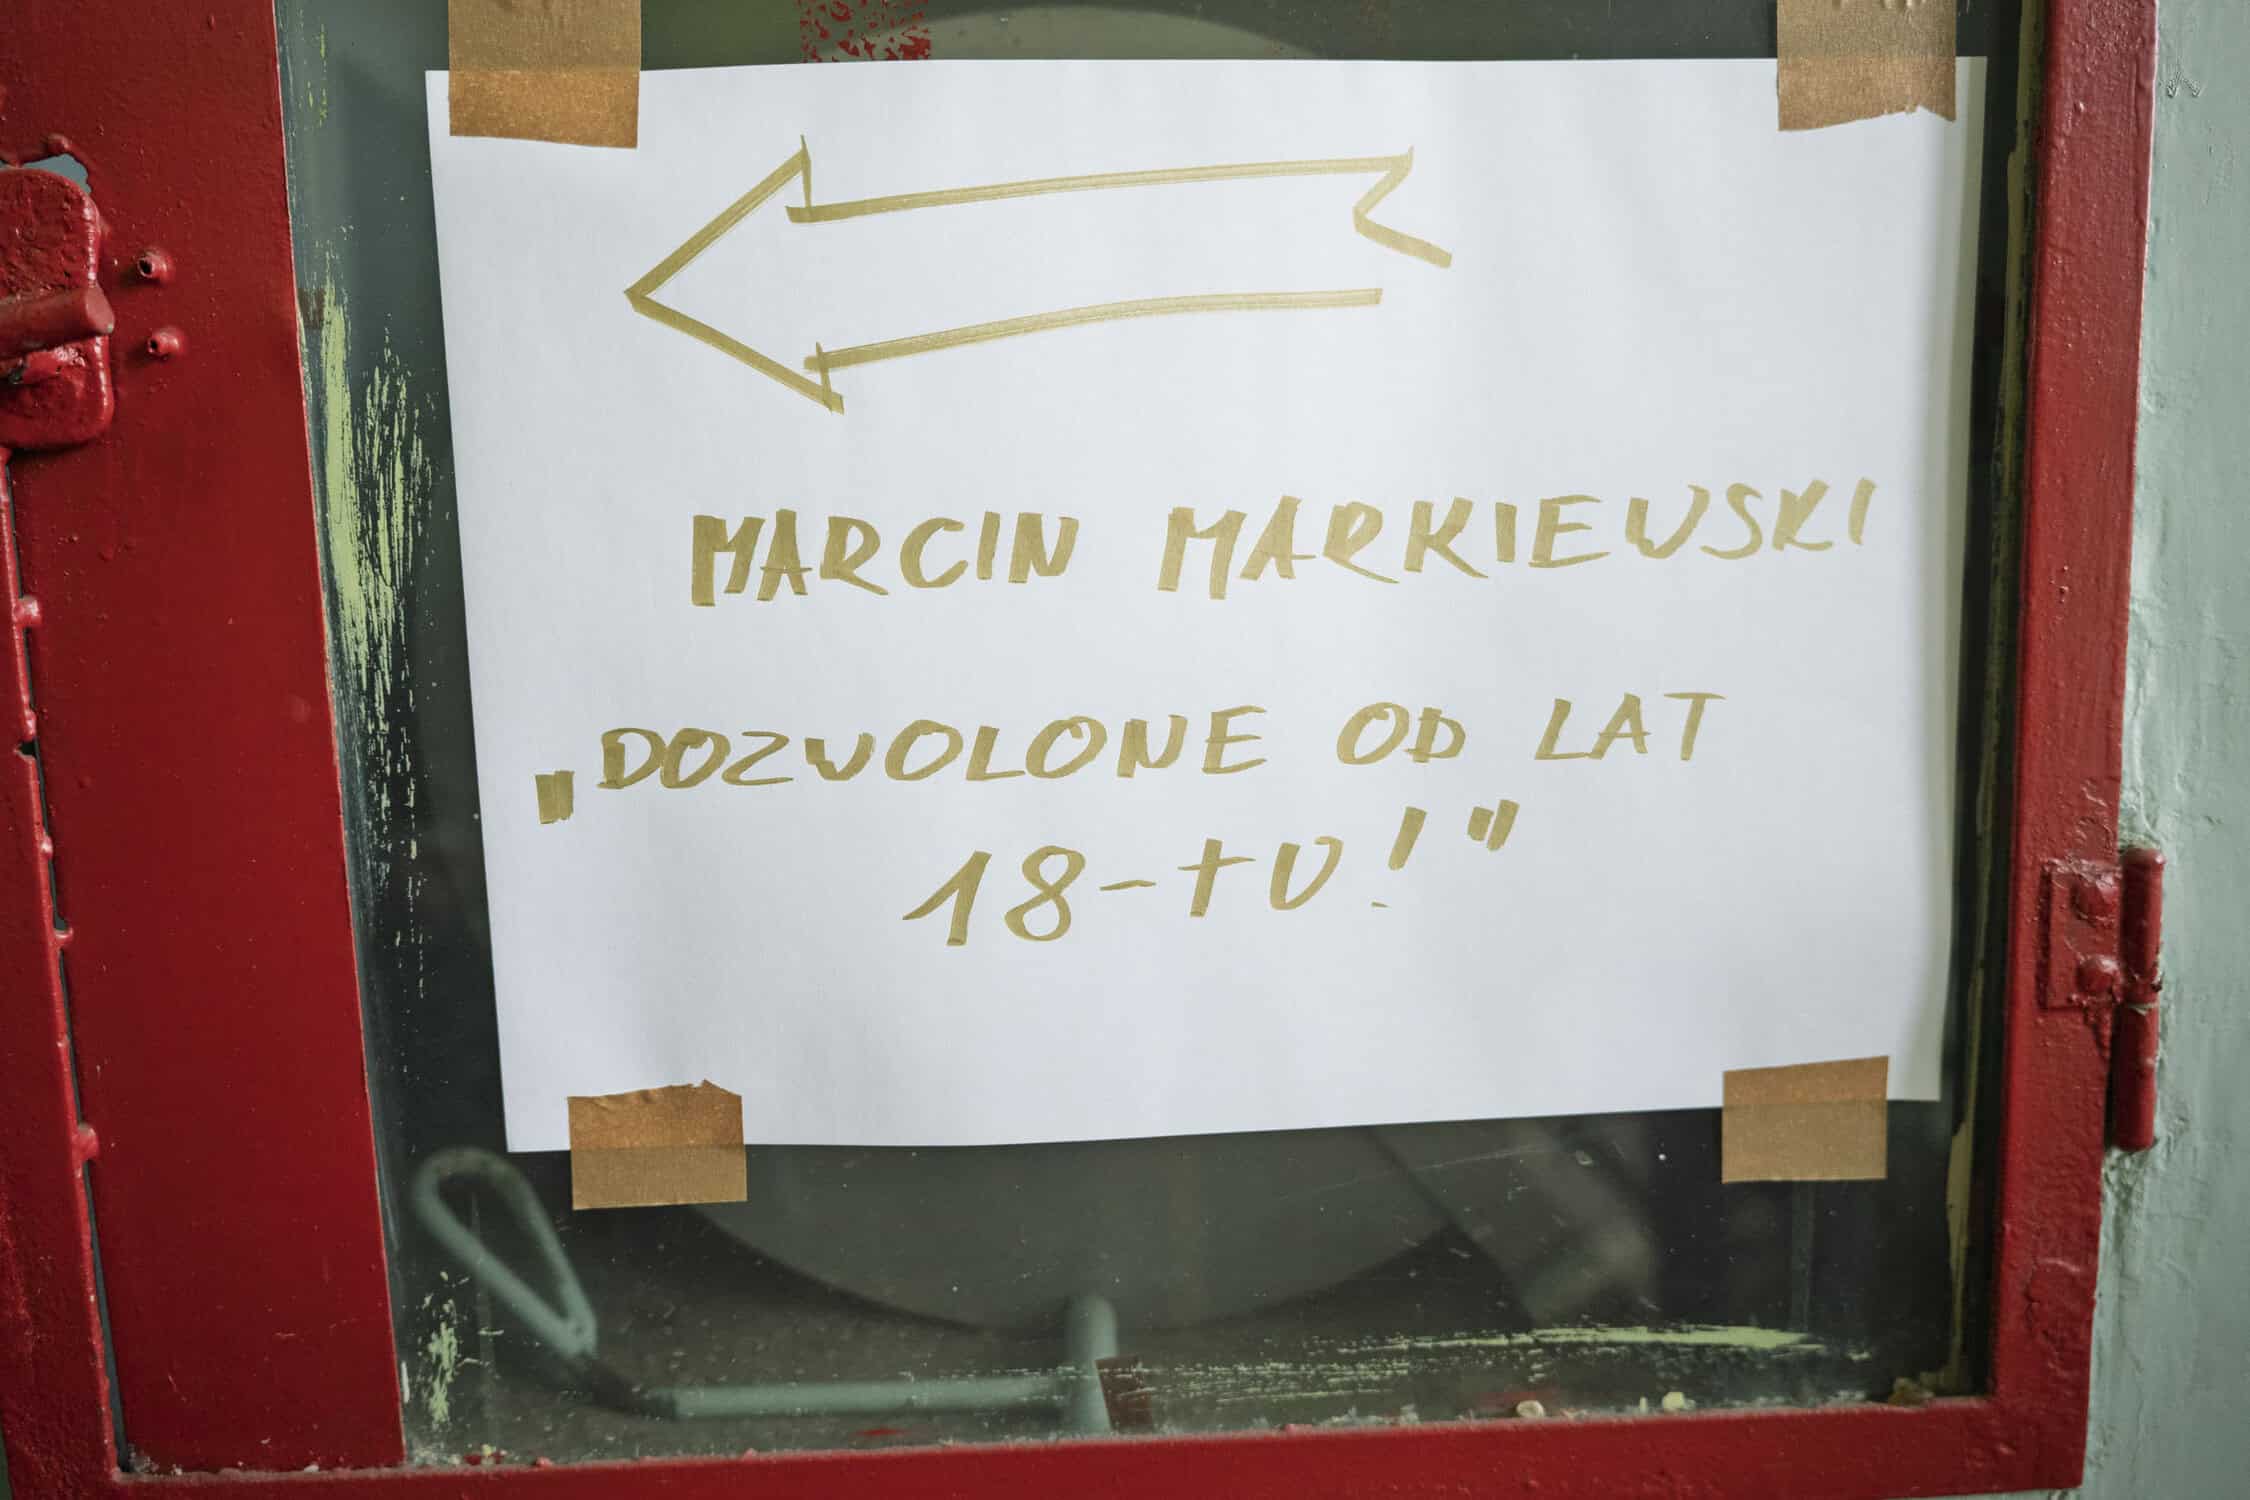 MARCIN MARKIEWSKI
„DOZWOLONE OD LAT
18-TU!"